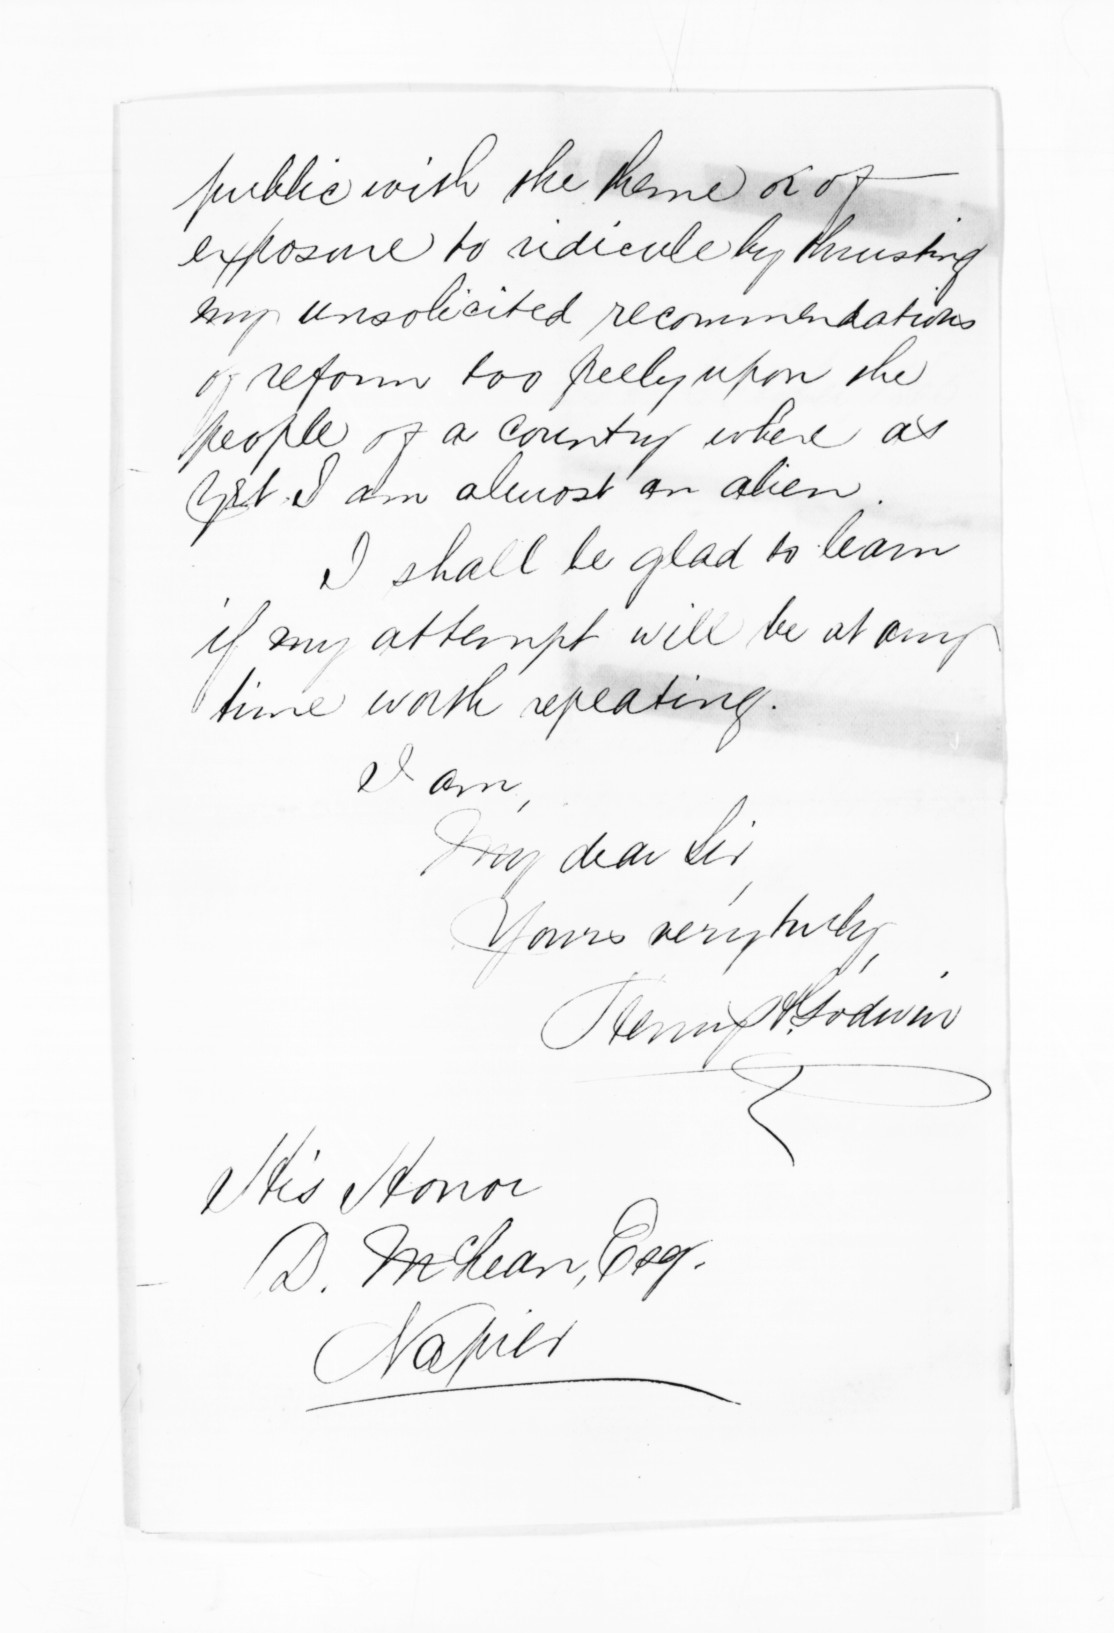 public with the theme or of
exposure to ridicule by thrusting
my unsolicited recommendations
of reform too freely upon the
people of a country where as
yet I am almost an alien.
I shall be glad to learn
if my attempt will be at any
time worth repeating.
I am,
My dear Sir,
Yours very truly,
Henry H. Godwin
His Honor
D. McLean, Esq.
Napier